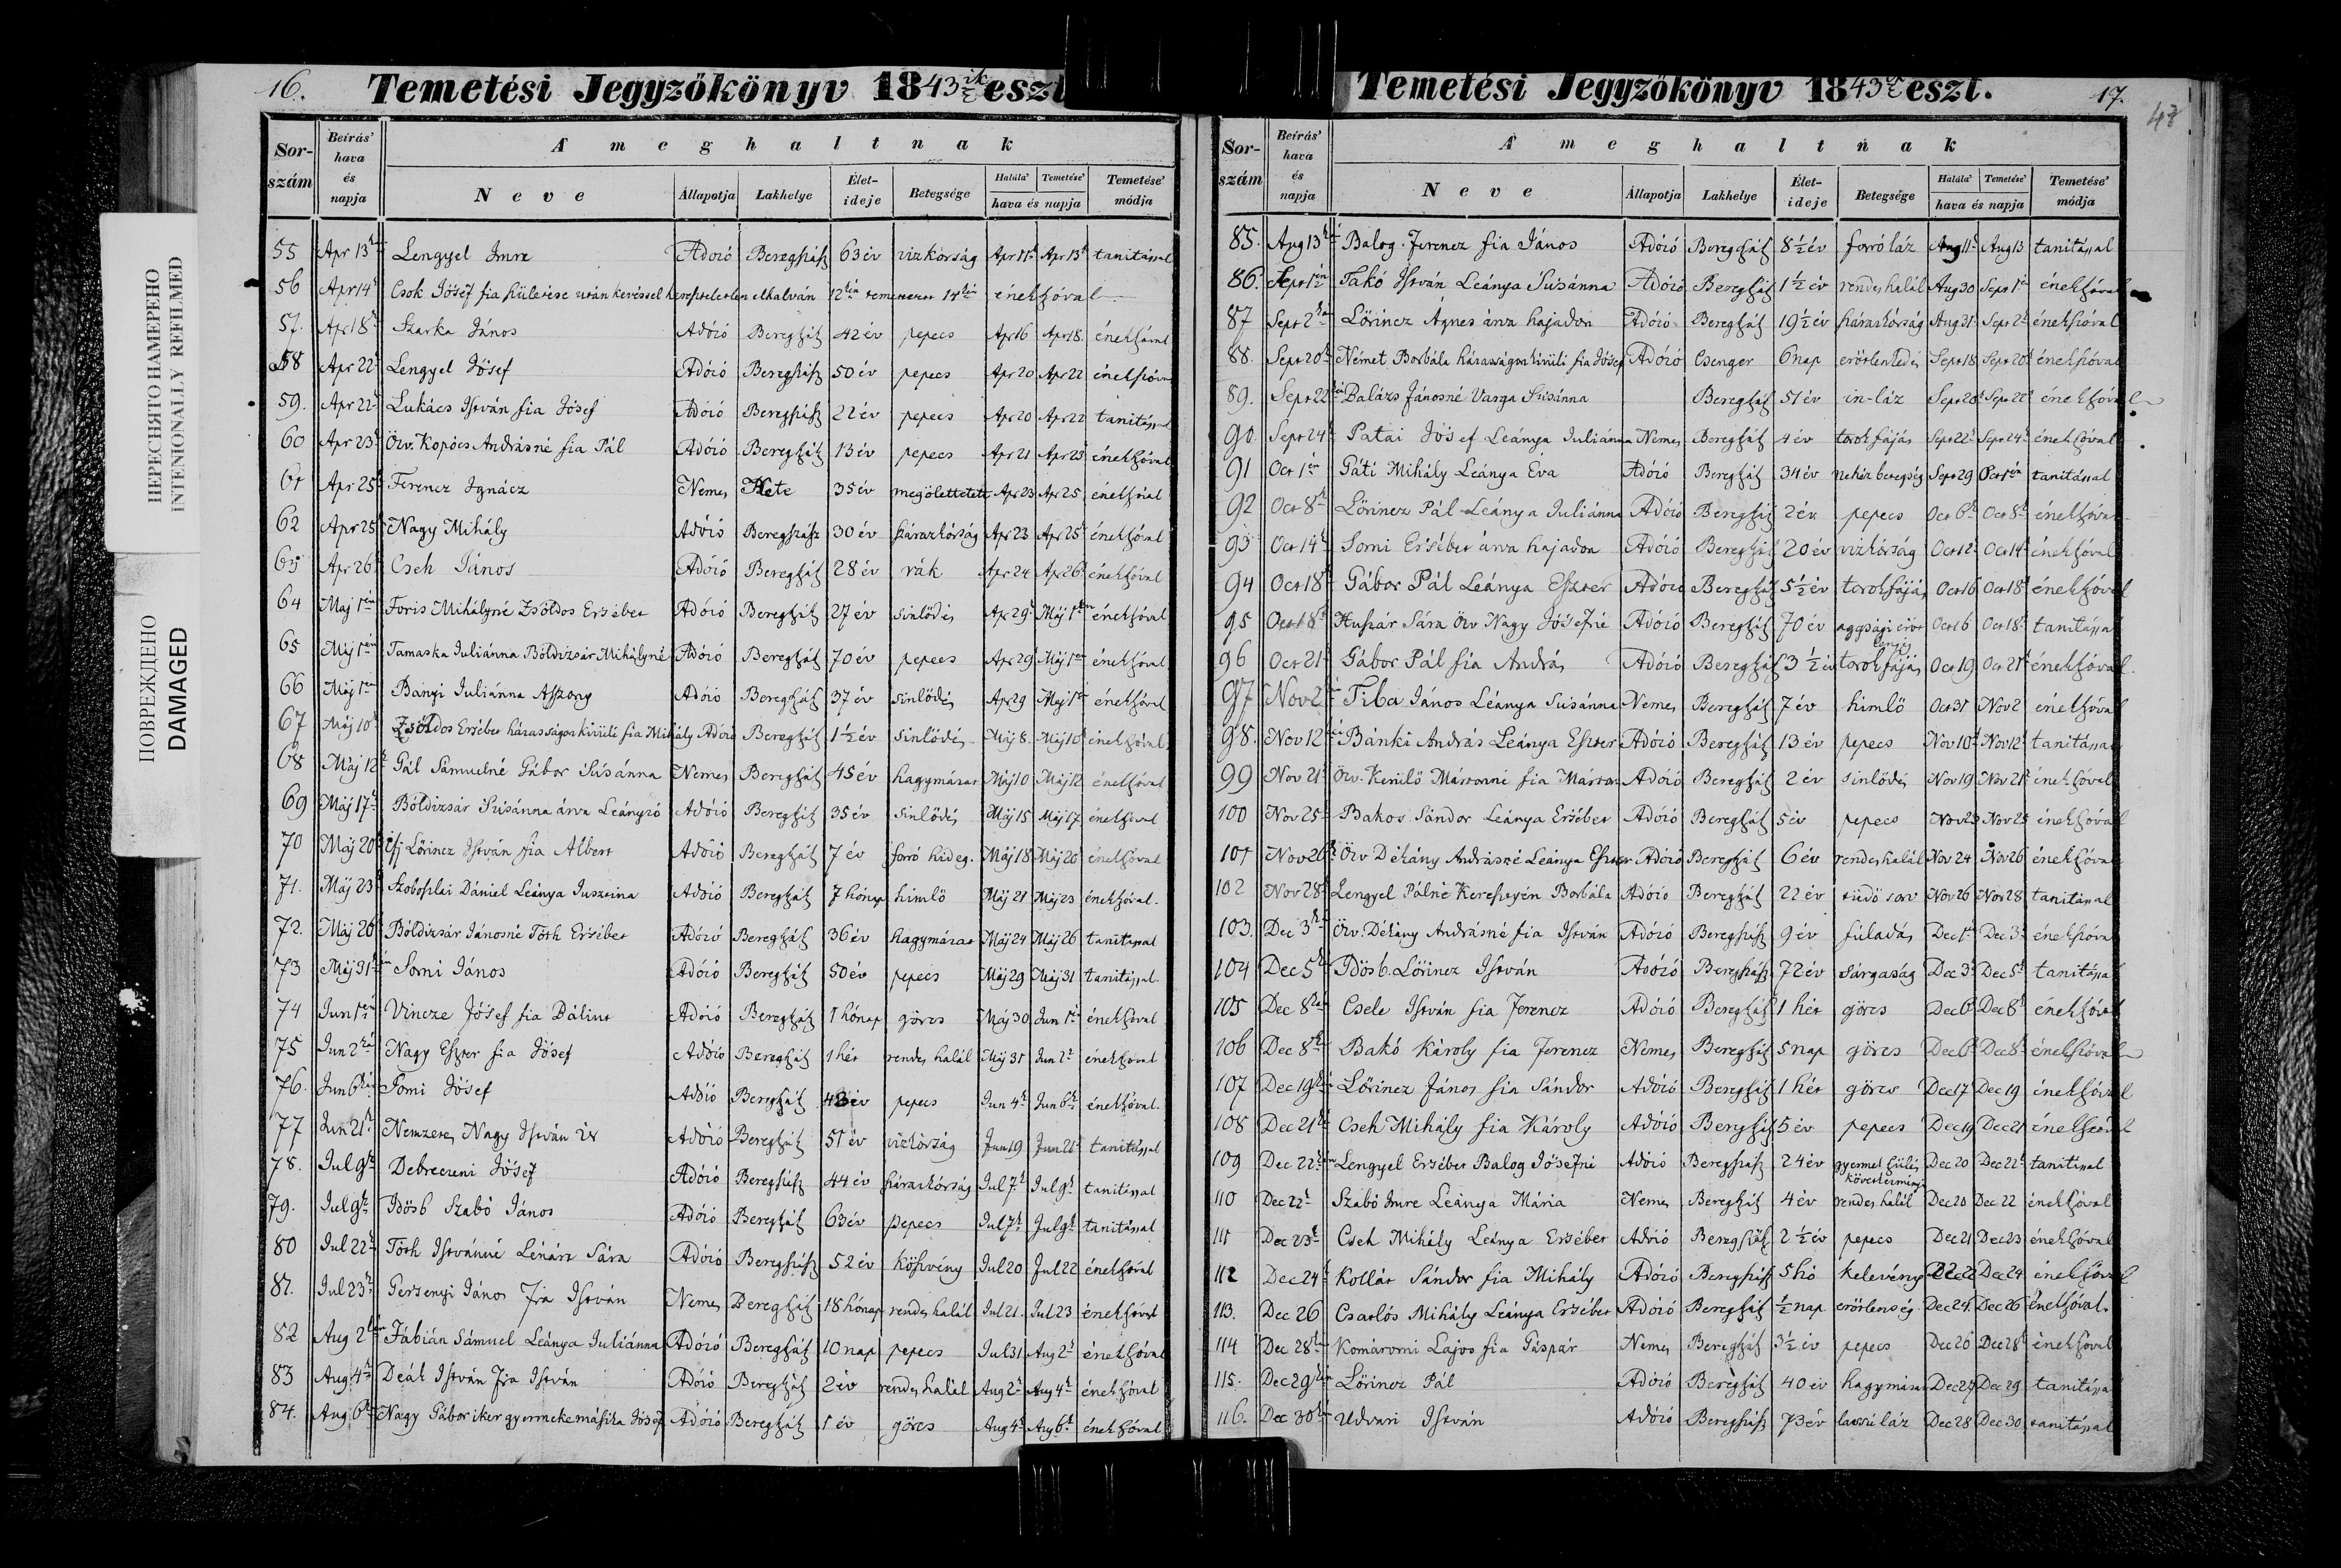 ПЕРЕСНЯТО НАМЕРЕНО
INTENIONALLY REFILMED
ПОВРЕЖДЕНО
DAMAGED
16. Temetési Jegyzőkönyv 1843ik eszt
Sor-szám Beírás' hava és napja A meghaltnak
Neve Állapotja Lakhelye Élet-ideje Betegsége Halála' Temetése' hava és napja Temetése' módja
55 Apr 13 Lengyel Imre Adózó Beregszász 63 év vizkórság Apr 11 Apr 13 tanitással
56 Apr 14 Csok Jósef fia születése után kereszteletlen elhalván 12én temettetett 14én énekszóval
57. Apr 18 Szarka János Adózó Beregszász 42 év pepecs Apr 16 Apr 18 énekszóval
58 Apr 22 Lengyel Jósef Adózó Beregszász 50 év pepecs Apr 20 Apr 22 énekszóval
59. Apr 22 Lukács István fia Jósef Adózó Beregszász 22 év pepecs Apr 20 Apr 22 tanitással
60 Apr 23 Özv. Kopócs Andrásné fia Pál Adózó Beregszász 13 év pepecs Apr 21 Apr 23 énekszóval
61 Apr 25 Ferencz Ignácz Nemes Kete 35 év megölettetett Apr 23 Apr 25 énekszóval
62 Apr 25 Nagy Mihály Adózó Beregszász 30 év szárazkórság Apr 23 Apr 25 énekszóval
63 Apr 26 Cseh János Adózó Beregszász 28 év rák Apr 24 Apr 26 énekszóval
64 Maj 1én Foris Mihályné Zsoldos Ersébet Adózó Beregszász 27 év sinlődés Apr 29 Máj 1én énekszóval
65 Máj 1én Tamaska Juliánna Bóldizsár Mihályné Adózó Beregszász 70 év pepecs Apr 29 Máj 1én énekszóval
66 Máj 1én Bányi Juliánna Aszszony Adózó Beregszász 37 év sinlődés Apr 29 Maj 1én énekszóval
67 Máj 10 Zsoldos Ersébet házasságon kivüli fia Mihály Adózó Beregszász 1½ év sinlődés Máj 8. Máj 10 énekszóval
68 Máj 12 Gál Samuelné Gábor Susánna Nemes Beregszász 45 év hagymáz Máj 10 Máj 12 énekszóval
69 Máj 17 Bóldizsár Susánna árva Leányzó Adózó Beregszász 35 év sinlődés Máj 15 Máj 17 énekszóval
70 Máj 20 Ifj Lőrincz István fia Albert Adózó Beregszász 7 év forró hideg. Máj 18 Máj 20 énekszóval
71. Máj 23 Szoboszlai Dániel Leánya Jusztina Adózó Beregszász 7 hónap himlő Máj 21 Máj 23 énekszóval.
72. Máj 26 Bóldizsár Jánosné Tóth Ersébet Adózó Beregszász 36 év hagymáz Máj 24 Máj 26 tanitással
73 Máj 31 Somi János Adózó Beregszász 50 év pepecs Máj 29 Máj 31 tanitással.
74 Jun 1én Vincze Jósef fia Bálint Adózó Beregszász 1 hónap görcs Máj 30 Jun 1én énekszóval
75 Jun 2 Nagy Eszter fia Jósef Adózó Beregszász 1 hét rendes halál Máj 31 Jun 2 énekszóval
76. Jun 6 Somi Jósef Adózó Beregszász 48 év pepecs Jun 4 Jun 6 énekszóval.
77 Jun 21 Nemzetes Nagy István Úr Adózó Beregszász 51 év vizkórság Jun 19 Jun 21 tanitással
78. Jul 9 Debreczeni Jósef Adózó Beregszász 44 év szárazkórság Jul 7. Jul 9 tanitással
79. Jul 9 Idősb Szabó János Adózó Beregszász 63 év pepecs Jul 7 Jul 9 tanitással
80 Jul 22 Tóth Istvánné Lénárt Sára Adózó Beregszász 52 év köszvény Jul 20 Jul 22 énekszóval
81. Jul 23 Gersenyi János Fia István Nemes Beregszász 18 hónap rendes halál Jul 21. Jul 23 énekszóval
82 Aug 2 Fábián Sámuel Leánya Juliánna Adózó Beregszász 10 nap pepecs Jul 31 Aug 2 énekszóval
83 Aug 4 Deák István Fia István Adózó Beregszász 2 év rendes halál Aug 2 Aug 4 énekszóval
84. Aug 6 Nagy Gábor iker gyermeke másika Jósef Adózó Beregszász 1 év görcs Aug 4 Aug 6 énekszóval
Temetési Jegyzőkönyv 1843 eszt. 17.
48
Sor-szám Beírás' hava és napja A meghaltnak
Neve Állapotja Lakhelye Élet-ideje Betegsége Halála' Temetése' hava és napja Temetése' módja
85. Aug 13 Balog Ferencz fia János Adózó Beregszász 8½ év forró láz Aug 11 Aug 13 tanitással
86. Sept 1én Takó István Leánya Susánna Adózó Beregszász 1½ év rendes halál Aug 30 Sept 1 énekszóval
87 Sept 2 Lőrincz Ágnes árva hajadon Adózó Beregszász 19½ év szárazkórság Aug 31 Sept 2 énekszóval
88. Sept 20 Német Borbála házasságon kivüli fia Jósef Adózó Csenger 6 nap erőtlenledés Sept 18 Sept 20 énekszóval
89. Sept 22 Balázs Jánosné Varga Susánna Beregszász 51 év in-láz Sept 20 Sept 22 énekszóval
90. Sept 24 Patai Jósef Leánya Juliánna Nemes Beregszász 4 év torokfájás Sept 22 Sept 24 énekszóval
91 Oct 1én Gáti Mihály Leánya Éva Adózó Beregszász 34 év nehéz betegség Sept 29 Oct 1én tanitással
92 Oct 8 Lőrincz Pál Leánya Juliánna Adózó Beregszász 2 év pepecs Oct 6 Oct 8 énekszóval
93 Oct 14 Somi Ersébet árva hajadon Adózó Beregszász 20 év vizkórság Oct 12 Oct 14 énekszóval
94 Oct 18 Gábor Pál Leánya Eszter Adózó Beregszász 5½ év torokfájás Oct 16 Oct 18 énekszóval
95 Oct 18 Huszár Sára Özv Nagy Jósefné Adózó Beregszász 70 év aggsági Oct 16 Oct 18 tanitással
96 Oct 21 Gábor Pál fia András Adózó Beregszász 3½ év torokfájás Oct 19 Oct 21 énekszóval.
97 Nov 2 Tiba János Leánya Susánna Nemes Beregszász 7 év himlő Oct 31 Nov 2 énekszóval
98. Nov 12 Bánki András Leánya Eszter Adózó Beregszász 13 év pepecs Nov 10 Nov 12 tanitással
99 Nov 21 Özv. Kerülő Mártonné fia Márton Adózó Beregszász 2 év sinlődés Nov 19 Nov 21 énekszóval
100 Nov 25 Bakos Sándor Leánya Ersébet Adózó Beregszász 5 év pepecs Nov 23 Nov 25 énekszóval
101 Nov 26 Özv Dékány Andrásné Leánya Eszter Adózó Beregszász 6 év rendes halál Nov 24 Nov 26 énekszóval
102 Nov 28 Lengyel Pálné Keresztyén Borbála Adózó Beregszász 22 év tüdő sorv Nov 26 Nov 28 tanitással
103. Dec 3 Özv. Dékány Andrásné fia István Adózó Beregszász 9 év fúladás Dec 1 Dec 3 énekszóval
104 Dec 5 Idősb. Lőrincz István Adózó Beregszász 72 év sárgaság Dec 3 Dec 5 tanitással
105 Dec 8 Csele István fia Ferencz Adózó Beregszász 1 hét görcs Dec 6 Dec 8 énekszóval
106 Dec 8 Bakó Károly fia Ferencz Nemes Beregszász 5 nap görcs Dec 6 Dec 8 énekszóval
107 Dec 19 Lőrincz János fia Sándor Adózó Beregszász 1 hét görcs Dec 17 Dec 19 énekszóval
108 Dec 21 Cseh Mihály fia Károly Adózó Bergszász 5 év pepecs Dec 19 Dec 21 énekszóval
109 Dec 22 Lengyel Ersébet Balog Jósefné Adózó Beregszász 24 év gyermek szülés Dec 20 Dec 22 tanitással
110 Dec 22 Szabó Imre Leánya Mária Nemes Beregszász 4 év rendes halál Dec 20 Dec 22 énekszóval
111 Dec 23 Cseh Mihály Leánya Ersébet Adózó Beregszász 2½ év pepecs Dec 21 Dec 23 énekszóval
112 Dec 24 Kollár Sándor fia Mihály Adózó Beregszász 5 hó kelevény Dec 22 Dec 24 énekszóval
113. Dec 26 Csatlós Mihály Leánya Ersébet Adózó Beregszász ½ nap erőtlenség Dec 24. Dec 26 énekszóval.
114 Dec 28 Komáromi Lajos fia Gáspár Nemes Beregszász 3½ év pepecs Dec 26 Dec 28 énekszóval
115. Dec 29 Lőrincz Pál Adózó Beregszász 40 év hagymáz Dec 27 Dec 29 tanitással
116. Dec 30 Udvari István Adózó Beregszász 73 év lassú láz Dec 28 Dec 30 tanitással